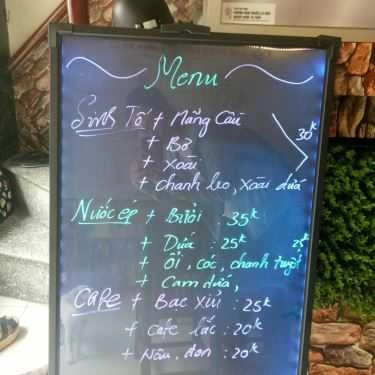 Menu
Sinh Tố + Mãng Cầu
+ Bơ
30k
+ Xoài
+ chanh leo, xoài dứa
Nước ép + Bưởi : 35k
+ Dứa : 25k 25k
+ Ổi, cóc, chanh tuyết
+ Cam dứa,
CAFE + Bạc Xỉu : 25k
+ Cafe lắc : 20k
+ Nâu, đen : 20k